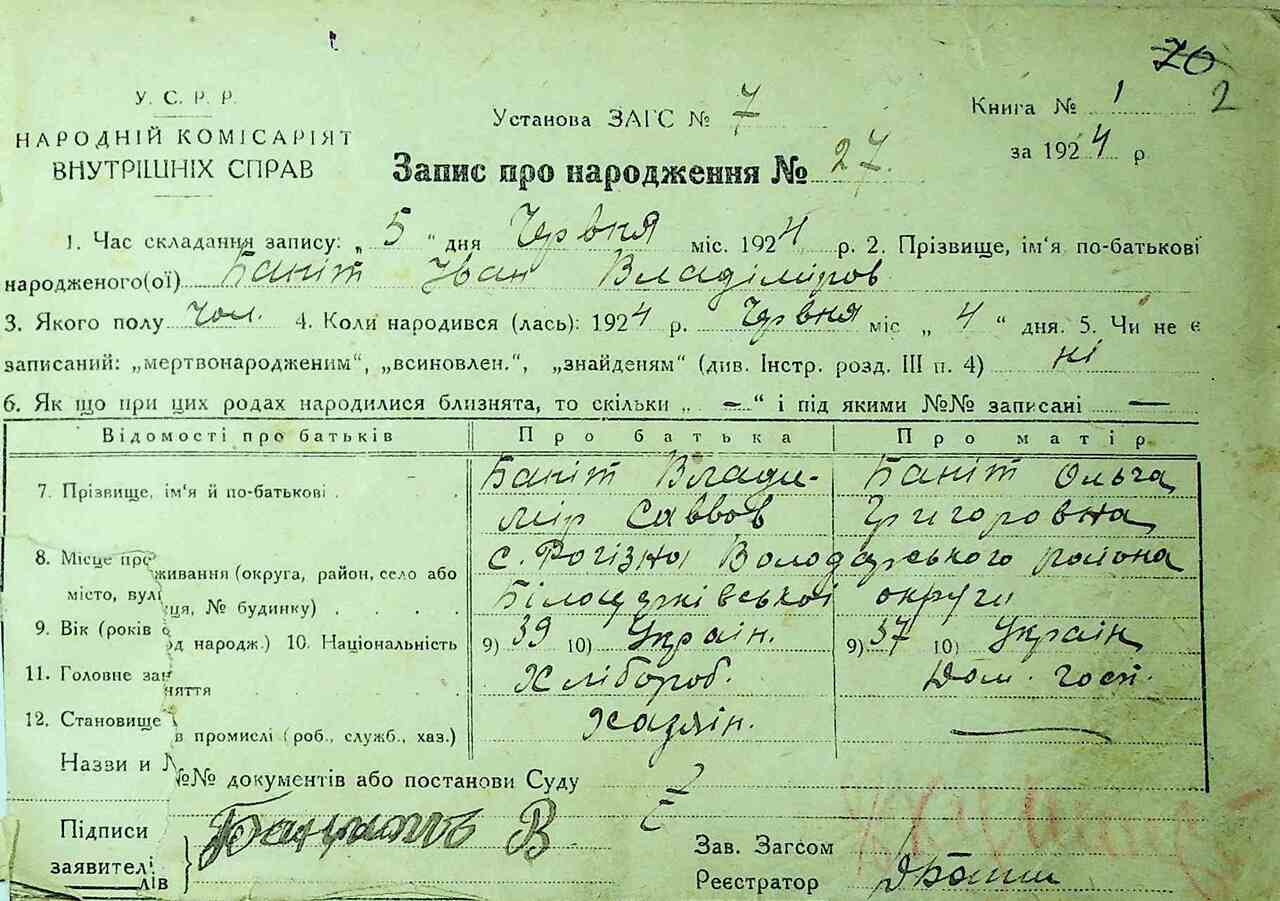 70
У. С. Р. Р.
НАРОДНІЙ КОМІСАРІЯТ
ВНУТРІШНІХ СПРАВ
Установа ЗАГС № 7
Книга № 1 2
за 1924 р
Запис про народження № 27.
1. Час складання запису: „ 5 “ дня Червня міс. 1924 р. 2. Прізвище, ім‘я по-батькові
народженого(ої) Баніт Іван Владіміров
3. Якого полу Чол. 4. Коли народився (лась): 1924 р. Червня міс „ 4 “ дня. 5. Чи не є
записаний: „мертвонародженим“, „всиновлен.“, „знайденям“ (див. Інстр. розд. III п. 4) ні
6. Як що при цих родах народилися близнята, то скільки „ — “ і під якими №№ записані —
Відомості про батьків Про батька Про матір
7. Прізвище, ім‘я й по-батькові . . Баніт Влади- Баніт Ольга
мір Саввов Григоровна
8. Місце про живання (округа, район, село або с. Рогізна Володарського района
місто, вули ця, № будинку) . . . . Білоцерківської округи
9. Вік (років в д народж.) 10. Національність 9) 39 10) Украін. 9) 37 10) Украін
11. Головне зан няття . . . . Хлібороб. Дом. госп.
12. Становище в промислі (роб., служб., хаз.) Хазяін. —
Назви и №№ документів або постанови Суду
Підписи
заявителі лів
В
Зав. Загсом
Реєстратор